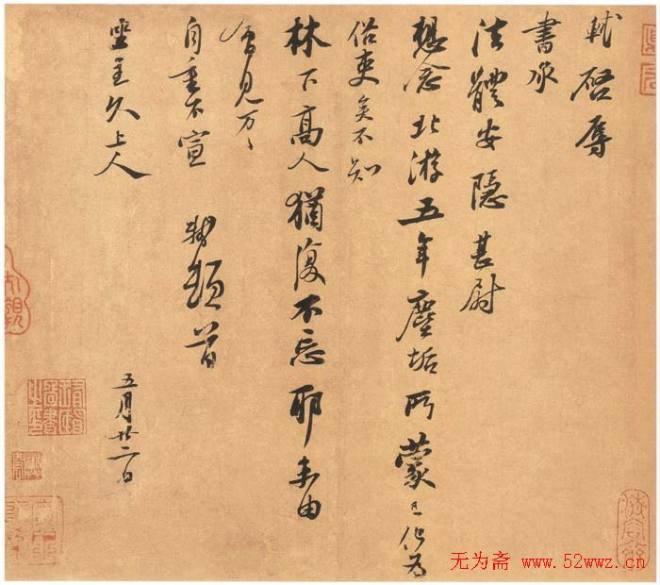 軾啓辱
書承
法體安隱甚尉
想念北游五年塵垢所蒙已化爲
俗吏矣不知
林下高人猶復不忘耶未由
會見萬萬
自重不宣 軾頓首
坐主久上人
五月廿二日
无为斋 www.52wwz.cn